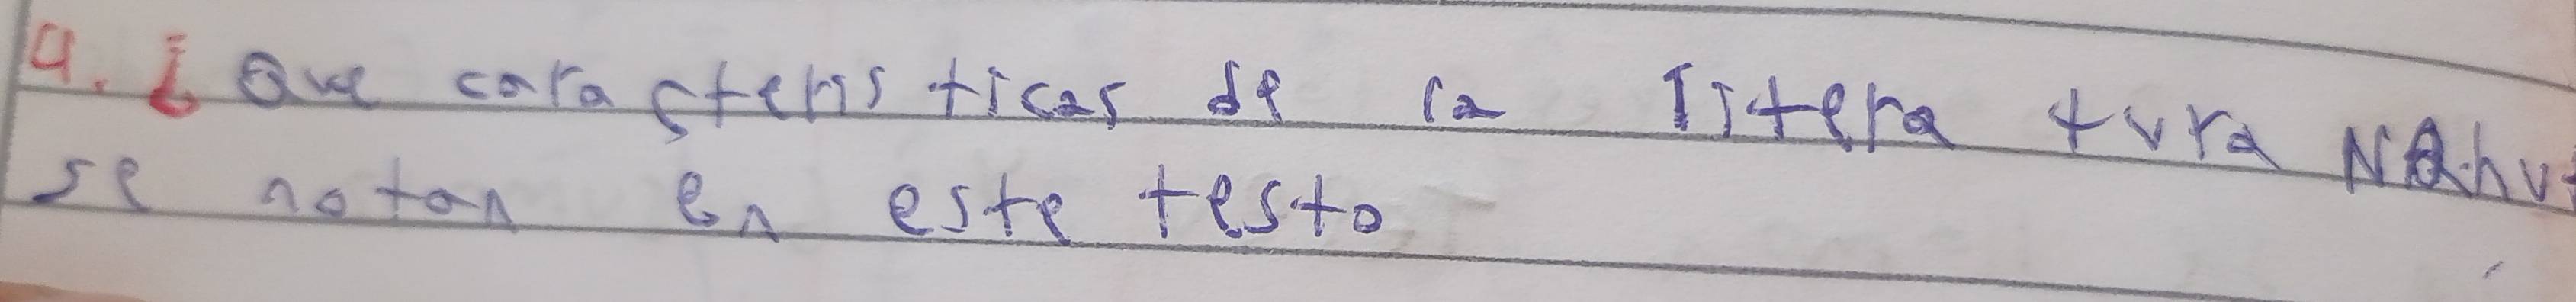 4. ¿ Que caracteristicas de la litera tura NAhu
se notan en este testo